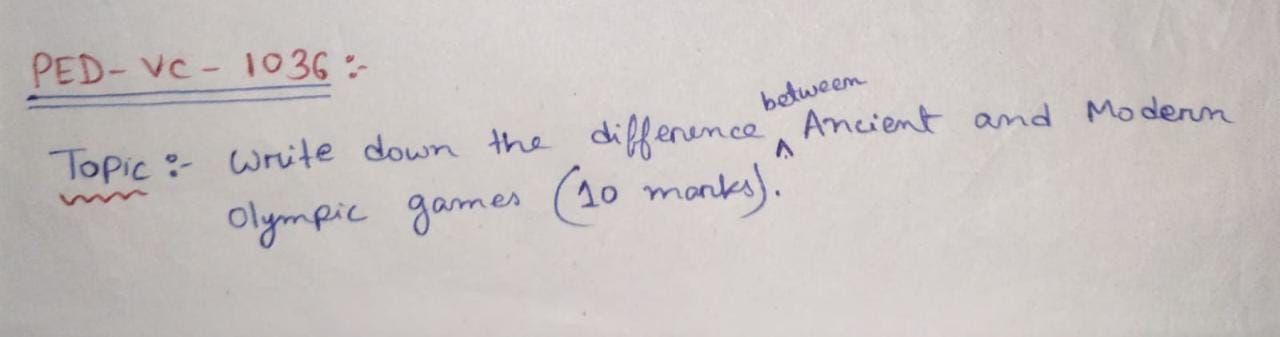 PED-VC-1036:-
Topic:- Write down the difference between Ancient and Modern
Olympic games (10 marks).